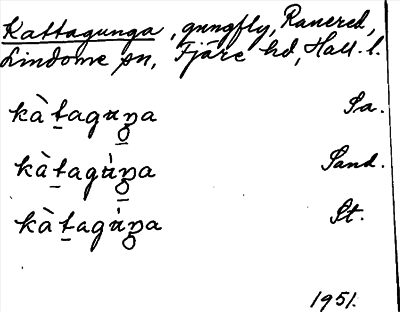 Kattagunga, gungfly, Ranered,
Lindome sn, Fjäre hd, Hall. l.
kàṯaguŋa Sa.
kàṯagúŋa Sand.
kàṯagúŋa St.
1951.